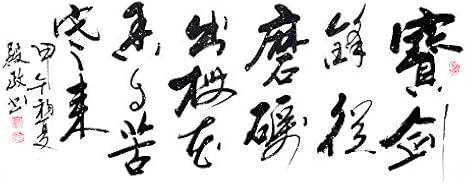 寶劍
鋒從
磨礪
出梅花
香自苦
寒来
甲午初夏
殿政书